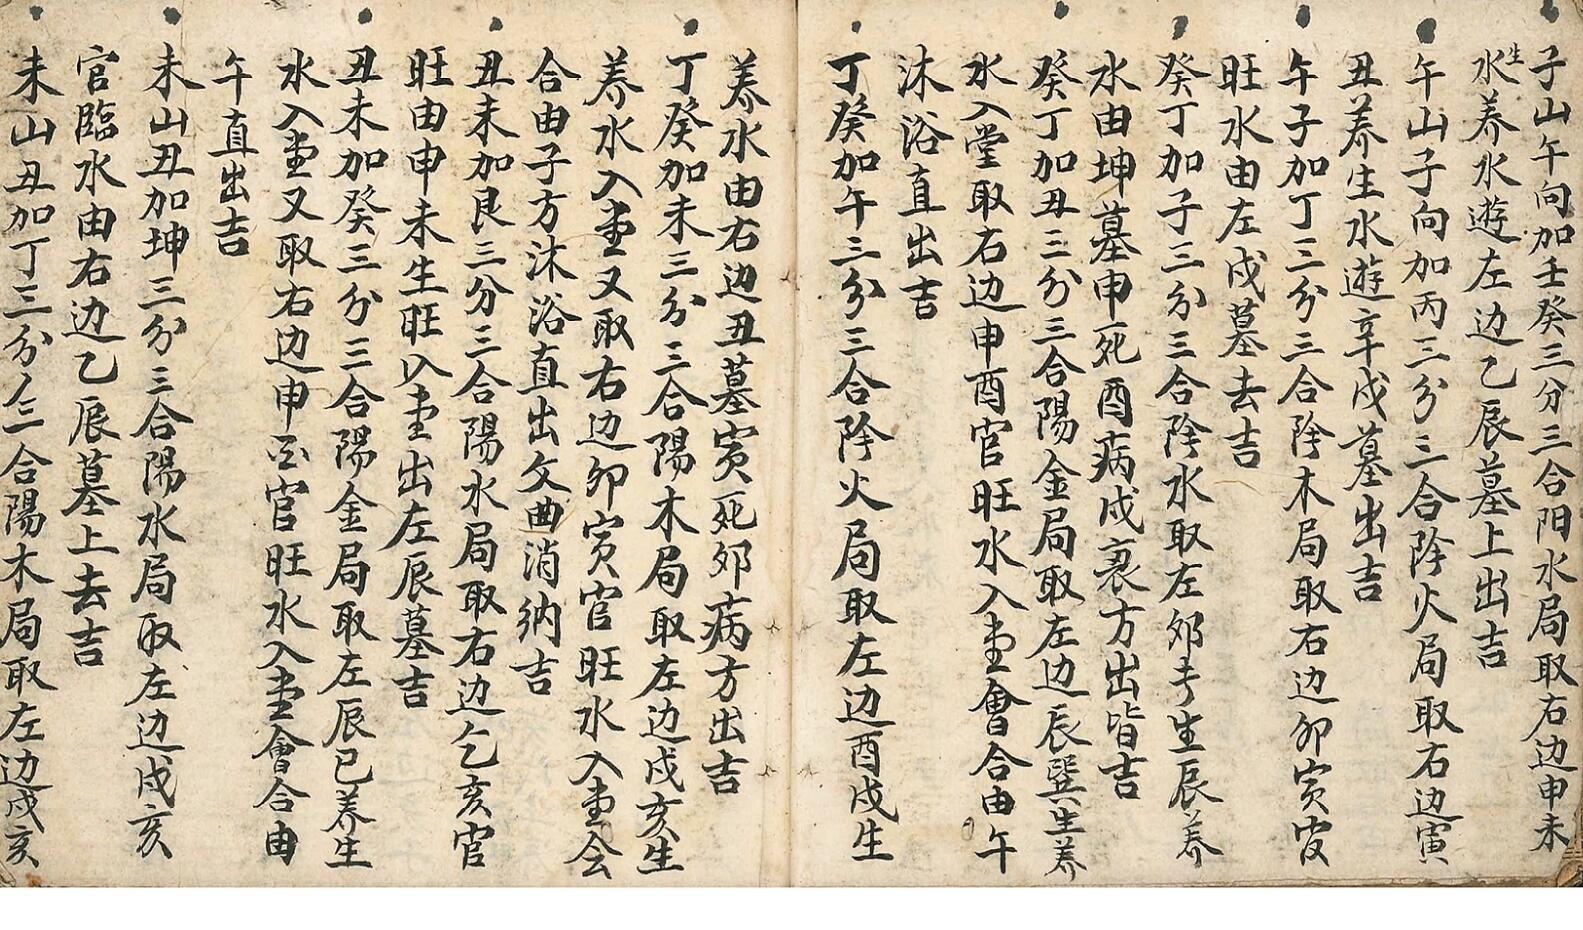 子山午向加壬癸三分三合阳水局取右边申未
生水养水遊左边乙辰墓上出吉
午山子向加丙三分三合阴火局取右边寅
丑养生水遊辛戌墓出吉
午子加丁三分三合阴木局取右边卯寅官
旺水由左戌墓去吉
癸丁加子三分三合阴水取左卯方生辰养
水由坤墓申死酉病戌衰方出皆吉
癸丁加丑三分三合陽金局取左边辰巽生养
水入堂取右边申酉官旺水入堂會合由午
沐浴直出吉
丁癸加午三分三合阴火局取左边酉戌生
养水由右边丑墓寅死卯病方出吉
丁癸加未三分三合陽木局取左边戌亥生
养水入堂又取右边卯寅官旺水入堂会
合由子方沐浴直出文曲消纳吉
丑未加艮三分三合陽水局取右边乞亥官
旺由申未生旺入堂出左辰墓吉
丑未加癸三分三合陽金局取左辰巳养生
水入堂又取右边申酉官旺水入堂會合由
午直出吉
未山丑加坤三分三合陽水局取左边戌亥
官臨水由右边乙辰墓上去吉
未山丑加丁三分三合陽木局取左边戌亥